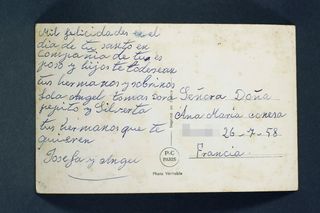 Mil felicidades en el
dia de tu santo en
Compañia de tu es
poso y hijos te todesean
tus hermanos y sobrinos
Lola Angel tomas Sara
pepito y Silverta
tus hermanos que te
quieren
Josefa y Angu
Señora Doña
Ana Maria
26-7-58
Francia
P-C
PARIS
Photo Véritable